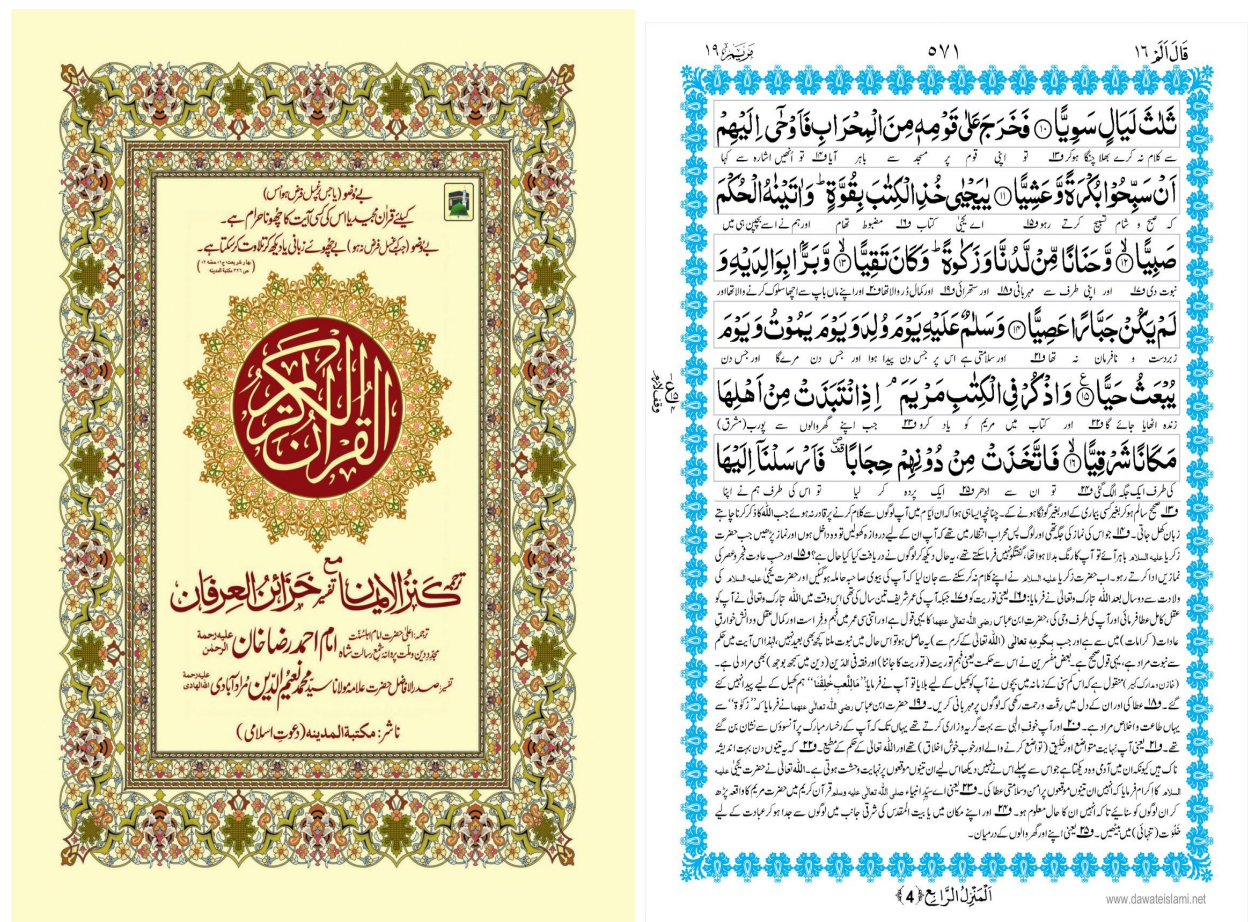 بے وضو (یا جس پر غسل فرض ہو اس)
کیلئے قرآن مجید یا اس کی کسی آیت کا چھونا حرام ہے۔
بے وضو (جبکہ غسل فرض نہ ہو) بے چھوئے زبانی یا دیکھ کر تلاوت کر سکتا ہے۔
القرآن الكريم
مع
ترجمہ کنز الایمان تفسیر خزائن العرفان
ترجمہ: اعلیٰ حضرت امام اہلسنّت
مجدد دین و ملت پروانہ شمع رسالت شاہ امام احمد رضا خان علیہ رحمة الرحمٰن
تفسیر: صدر الافاضل حضرت علامہ مولانا سید محمد نعیم الدین مراد آبادی علیہ رحمة اللہ الہادی
ناشر: مکتبة المدینہ (دعوتِ اسلامی)
قَالَ اَلَمْ ١٦ ٥٧١ مَرْيَم ١٩
ثَلٰثَ لَيَالٍ سَوِيًّا ١٠ فَخَرَجَ عَلٰى قَوْمِهٖ مِنَ الْمِحْرَابِ فَاَوْحٰۤى اِلَيْهِمْ
سے کلام نہ کرے بھلا چنگا ہو کر ف١٣ تو اپنی قوم پر مسجد سے باہر آیا ف١٤ تو انھیں اشارہ سے کہا
اَنْ سَبِّحُوْا بُكْرَةً وَّ عَشِيًّا ١١ يٰيَحْيٰى خُذِ الْكِتٰبَ بِقُوَّةٍ ؕ وَ اٰتَيْنٰهُ الْحُكْمَ
کہ صبح و شام تسبیح کرتے رہو ف١٥ اے یحییٰ کتاب ف١٦ مضبوط تھام اور ہم نے اسے بچپن ہی میں
صَبِيًّا ١٢ وَّ حَنَانًا مِّنْ لَّدُنَّا وَ زَكٰوةً ؕ وَ كَانَ تَقِيًّا ١٣ وَّ بَرًّۢا بِوَالِدَيْهِ وَ
نبوت دی ف١٧ اور اپنی طرف سے مہربانی ف١٨ اور ستھرائی ف١٩ اور کمال ڈر والا تھا ف٢٠ اور اپنے ماں باپ سے اچھا سلوک کرنے والا تھا اور
لَمْ يَكُنْ جَبَّارًا عَصِيًّا ١٤ وَ سَلٰمٌ عَلَيْهِ يَوْمَ وُلِدَ وَ يَوْمَ يَمُوْتُ وَ يَوْمَ
زبردست و نافرمان نہ تھا ف٢١ اور سلامتی ہے اس پر جس دن پیدا ہوا اور جس دن مرے گا اور جس دن
يُبْعَثُ حَيًّا ١٥ وَ اذْكُرْ فِي الْكِتٰبِ مَرْيَمَ ۘ اِذِ انْتَبَذَتْ مِنْ اَهْلِهَا
زندہ اٹھایا جائے گا ف٢٢ اور کتاب میں مریم کو یاد کرو ف٢٣ جب اپنے گھر والوں سے پورب (مشرق)
مَكَانًا شَرْقِيًّا ١٦ فَاتَّخَذَتْ مِنْ دُوْنِهِمْ حِجَابًا ۪۫ فَاَرْسَلْنَاۤ اِلَيْهَا
کی طرف ایک جگہ الگ گئی ف٢٤ تو ان سے ادھر ف٢٥ ایک پردہ کر لیا تو اس کی طرف ہم نے اپنا
ف١٣ صحیح سالم ہو کر بغیر کسی بیماری کے اور بغیر گونگا ہونے کے۔ چنانچہ ایسا ہی ہوا کہ ان ایام میں آپ لوگوں سے کلام کرنے پر قادر نہ ہوئے جب اللہ کا ذکر کرنا چاہتے
زبان کھل جاتی۔ ف١٤ جو اس کی نماز کی جگہ تھی اور لوگ پسِ محراب انتظار میں تھے کہ آپ ان کے لیے دروازہ کھولیں تو وہ داخل ہوں اور نماز پڑھیں جب حضرت
زکریا علیہ السلام باہر آئے تو آپ کا رنگ بدلا ہوا تھا، گفتگو نہیں فرما سکتے تھے، یہ حال دیکھ کر لوگوں نے دریافت کیا کیا حال ہے؟ ف١٥ اور حسب عادت فجر و عصر کی
نمازیں ادا کرتے رہو۔ اب حضرت زکریا علیہ السلام نے اپنے کلام نہ کر سکنے سے جان لیا کہ آپ کی بیوی صاحبہ حاملہ ہو گئیں اور حضرت یحییٰ علیہ السلام کی
ولادت سے دو سال بعد اللہ تبارک وتعالیٰ نے فرمایا: ف١٦ یعنی توریت کو ف١٧ جبکہ آپ کی عمر شریف تین سال کی تھی اس وقت میں اللہ تبارک وتعالیٰ نے آپ کو
عقل کامل عطا فرمائی اور آپ کی طرف وحی کی، حضرت ابن عباس رضی اللہ تعالیٰ عنہما کا یہی قول ہے اور اتنی سی عمر میں فہم و فراست اور کمال عقل و دانش خوارقِ
عادات (کرامات) میں سے ہے اور جب بکرمہ تعالیٰ (اللہ تعالیٰ کے کرم سے) یہ حاصل ہو تو اس حال میں نبوت ملنا کچھ بھی بعید نہیں، لہٰذا اس آیت میں حکم
سے نبوت مراد ہے، یہی قول صحیح ہے۔ بعض مفسرین نے اس سے حکمت یعنی فہم توریت (توریت کا جاننا) اور فقہ فی الدین (دین میں سمجھ بوجھ) بھی مراد لی ہے۔
(خازن و مدارک کبیر) منقول ہے کہ اس کم سنی کے زمانہ میں بچوں نے آپ کو کھیل کے لیے بلایا تو آپ نے فرمایا: "مَا لِلَّعبِ خُلِقْنَا" ہم کھیل کے لیے پیدا نہیں کئے
گئے۔ ف١٨ عطا کی اور ان کے دل میں رقت و رحمت رکھی کہ لوگوں پر مہربانی کریں۔ ف١٩ حضرت ابن عباس رضی اللہ تعالیٰ عنہما نے فرمایا کہ "زکوٰة" سے
یہاں طاعت و اخلاص مراد ہے۔ ف٢٠ اور آپ خوفِ الٰہی سے بہت گریہ و زاری کرتے تھے یہاں تک کہ آپ کے رخسار مبارک پر آنسوؤں سے نشان بن گئے
تھے۔ ف٢١ یعنی آپ نہایت متواضع اور خلیق (تواضع کرنے والے اور خوب خوش اخلاق) تھے اور اللہ تعالیٰ کے حکم کے مطیع۔ ف٢٢ کہ یہ تینوں دن بہت اندیشہ
ناک ہیں کیونکہ ان میں آدمی وہ دیکھتا ہے جو اس سے پہلے اس نے نہیں دیکھا اس لیے ان تینوں موقعوں پر نہایت وحشت ہوتی ہے۔ اللہ تعالیٰ نے حضرت یحییٰ علیہ
السلام کا اکرام فرمایا کہ انہیں ان تینوں موقعوں پر امن و سلامتی عطا کی۔ ف٢٣ یعنی اے سید انبیاء صلی اللہ تعالیٰ علیہ وسلم قرآن کریم میں حضرت مریم کا واقعہ پڑھ
کر ان لوگوں کو سنائیے تاکہ انہیں ان کا حال معلوم ہو۔ ف٢٤ اور اپنے مکان میں یا بیت المقدس کی شرقی جانب میں لوگوں سے جدا ہو کر عبادت کے لیے
خلوت (تنہائی) میں بیٹھیں۔ ف٢٥ یعنی اپنے اور گھر والوں کے درمیان۔
اَلْمَنْزِلُ الرَّابِع ﴿4﴾
www.dawateislami.net